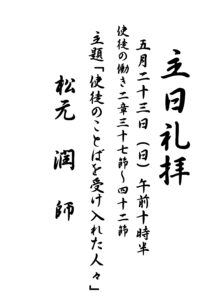 主日礼拝
五月二十三日（日）午前十時半
使徒の働き二章三十七節～四十二節
主題「使徒のことばを受け入れた人々」
松元　潤　師